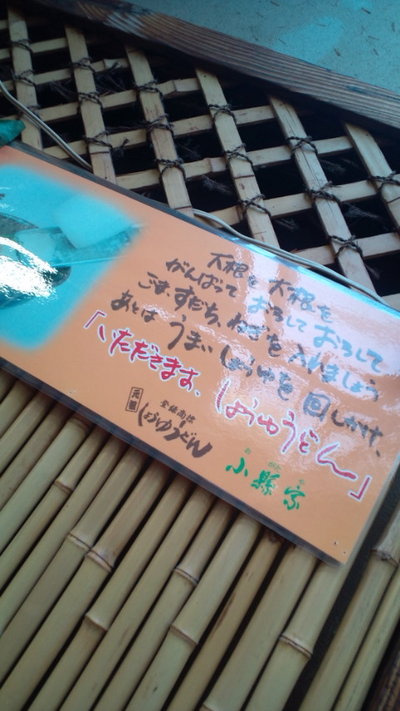 大根を大根を
がんばっておろしておろして
ごま、すだち、ねぎを入れましょう
あとはうまいしょうゆを回しかけ、
「いただきます、しょうゆうどん」
元祖
登録商標
しょうゆうどん
おがたや
小縣家